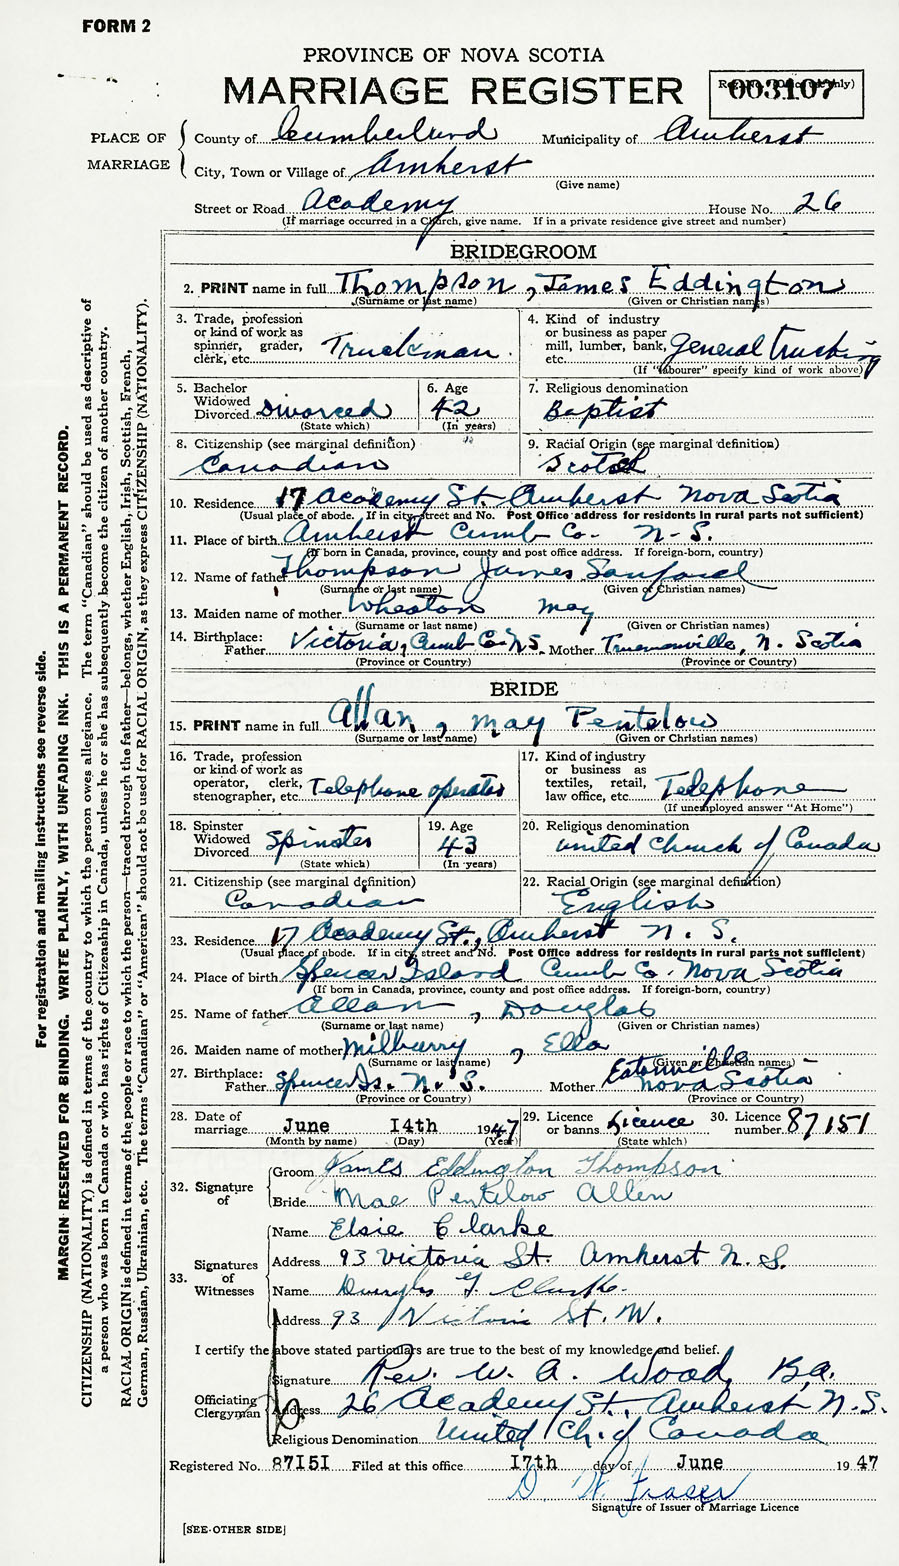 FORM 2
PROVINCE OF NOVA SCOTIA
MARRIAGE REGISTER
003107
PLACE OF MARRIAGE
County of Cumberland Municipality of Amherst
City, Town or Village of Amherst
(Give name)
Street or Road Academy House No. 26
(If marriage occurred in a Church, give name. If in a private residence give street and number)
BRIDEGROOM
2. PRINT name in full Thompson, James Eddington
(Surname or last name) (Given or Christian names)
3. Trade, profession or kind of work as spinner, grader, clerk, etc. Truckman.
4. Kind of industry or business as paper mill, lumber, bank, etc. General trucking
(If "labourer" specify kind of work above)
5. Bachelor Widowed Divorced Divorced
(State which)
6. Age 42
(In years)
7. Religious denomination
Baptist
8. Citizenship (see marginal definition)
Canadian
9. Racial Origin (see marginal definition)
Scotch
10. Residence 17 Academy St. Amherst Nova Scotia
(Usual place of abode. If in city, street and No. Post Office address for residents in rural parts not sufficient)
11. Place of birth Amherst Cumb Co. N.S.
(If born in Canada, province, county and post office address. If foreign-born, country)
12. Name of father Thompson James Sanford
(Surname or last name) (Given or Christian names)
13. Maiden name of mother Wheaton May
(Surname or last name) (Given or Christian names)
14. Birthplace: Father Victoria, Cumb Co. N.S. Mother Truemanville, N. Scotia
(Province or Country) (Province or Country)
BRIDE
15. PRINT name in full Allan, May Pentelow
(Surname or last name) (Given or Christian names)
16. Trade, profession or kind of work as operator, clerk, stenographer, etc. Telephone operator
17. Kind of industry or business as textiles, retail, law office, etc. Telephone
(If unemployed answer "At Home")
18. Spinster Widowed Divorced Spinster
(State which)
19. Age 43
(In years)
20. Religious denomination
United Church of Canada
21. Citizenship (see marginal definition)
Canadian
22. Racial Origin (see marginal definition)
English
23. Residence 17 Academy St., Amherst N.S.
(Usual place of abode. If in city, street and No. Post Office address for residents in rural parts not sufficient)
24. Place of birth Spencer Island Cumb Co. Nova Scotia
(If born in Canada, province, county and post office address. If foreign-born, country)
25. Name of father Allan, Douglas
(Surname or last name) (Given or Christian names)
26. Maiden name of mother Milburry, Ella
(Surname or last name) (Given or Christian names)
27. Birthplace: Father Spencer Is. N.S. Mother Eatonville Nova Scotia
(Province or Country) (Province or Country)
28. Date of marriage June 14th 1947
(Month by name) (Day) (Year)
29. Licence or banns Licence
(State which)
30. Licence number 87151
32. Signature of
Groom James Eddington Thompson
Bride Mae Pentelow Allen
33. Signatures of Witnesses
Name Elsie Clarke
Address 93 Victoria St. Amherst N.S.
Name Douglas Clarke
Address 93 Victoria St. W.
I certify the above stated particulars are true to the best of my knowledge and belief.
Officiating Clergyman
Signature Rev. W. A. Wood, B.A.
Address 26 Academy St., Amherst N.S.
Religious Denomination United Ch. of Canada
Registered No. 87151 Filed at this office 17th day of June 1947
D. W. Fraser
Signature of Issuer of Marriage Licence
[SEE OTHER SIDE]
For registration and mailing instructions see reverse side.
MARGIN RESERVED FOR BINDING. WRITE PLAINLY, WITH UNFADING INK. THIS IS A PERMANENT RECORD.
CITIZENSHIP (NATIONALITY) is defined in terms of the country to which the person owes allegiance. The term "Canadian" should be used as descriptive of
a person who was born in Canada or who has rights of Citizenship in Canada, unless he or she has subsequently become the citizen of another country.
RACIAL ORIGIN is defined in terms of the people or race to which the person—traced through the father—belongs, whether English, Irish, Scottish, French,
German, Russian, Ukrainian, etc. The terms "Canadian" or "American" should not be used for RACIAL ORIGIN, as they express CITIZENSHIP (NATIONALITY).